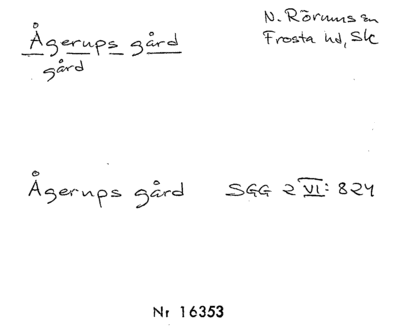 Ågerups gård
gård
N. Rörums sn
Frosta hd, Sk
Ågerups gård SGG 2 VI: 824
Nr 16353